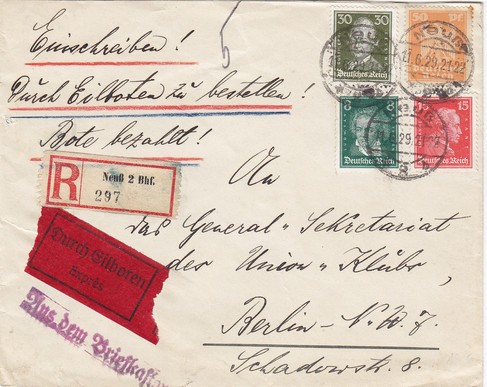 Einschreiben!
Durch Eilboten zu bestellen!
Bote bezahlt!
5
30
Deutsches Reich
50 Pf
8
Deutsches Reich
15
Deutsches Reich
NEUSS
21.6.29.21-22
R
Neuß 2 Bhf.
297
Durch Eilboten
Exprès
Aus dem Briefkasten
An
das General-Sekretariat
des Union-Klubs,
Berlin-N.W.7.
Schadowstr. 8.